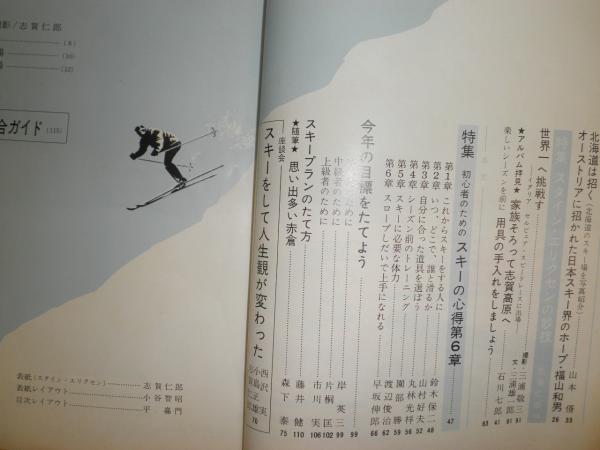 北海道は招く(北海道のスキー場を写真紹介)
オーストリアに招かれた日本スキー界のホープ・福山和男 山本 偦 33
特集 スタイン・エリクセンの妙技 26
世界一へ挑戦す イタリア セルビニア・スピードレースに出場
★アルバム拝見★ 家族そろって志賀高原へ 撮影・三浦敬三 文・三浦雄一郎 91
楽しいシーズンを前に 用具の手入れをしましょう 石川七郎 83
特集 初心者のための スキーの心得第6章 47
第1章 これからスキーをする人に 鈴木保二 48
第2章 いつ、どこで、誰と滑るか 山村好夫 52
第3章 自分に合った道具を選ぼう 丸林光祥 58
第4章 シーズン前のトレーニング 園部勝 59
第5章 スキーに必要な体力 渡辺俊治 62
第6章 スロープしだいで上手になれる 早坂伸郎 66
今年の目標をたてよう 99
ために 岸英三 99
中級者のために 片桐匡 102
上級者のために 市川実 106
スキープランのたて方 藤井健 110
★随筆★ 思い出多い赤倉 森下泰 75
座談会 スキーをして人生観が変わった 78
撮影/志賀仁郎
(8)
(10)
(12)
合ガイド (115)
表紙(スタイン・エリクセン) 志賀仁郎
表紙レイアウト 小谷智昭
目次レイアウト 平嘉門